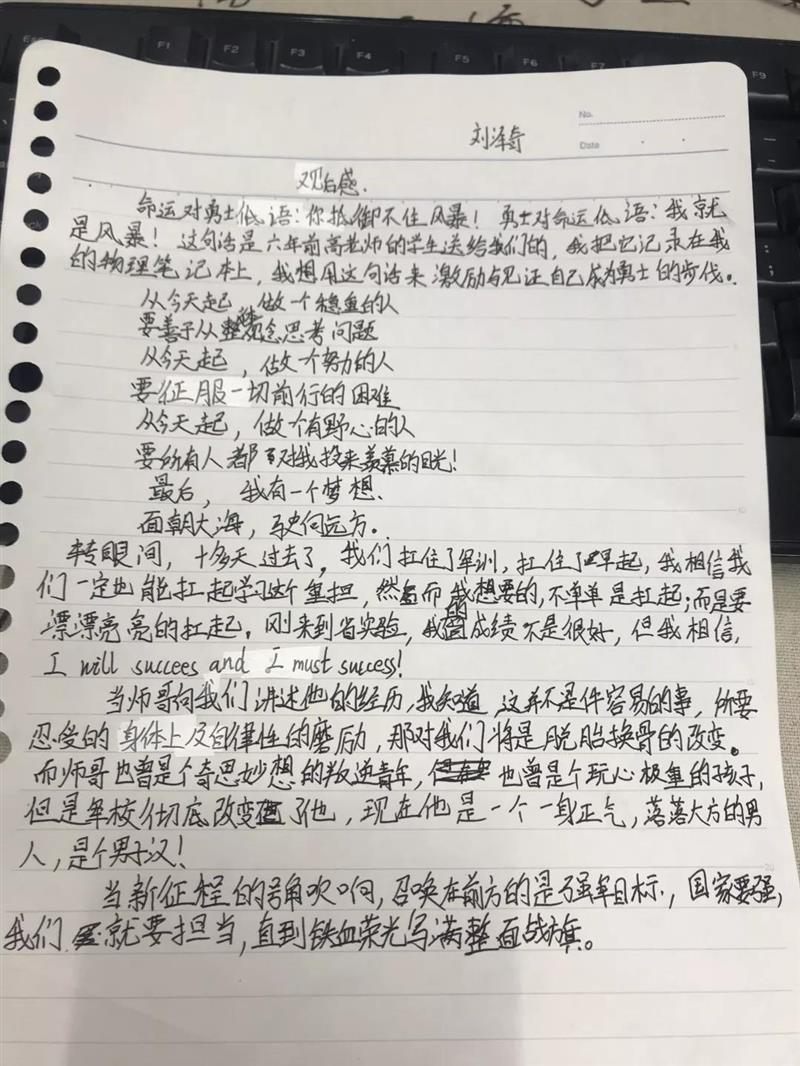 F1 F2 F3 F4 F5 F6 F7 F9
No.
刘泽奇
Date
观后感.
命运对勇士低语:你抵御不住风暴!勇士对命运低语:我就
是风暴!这句话是六年前高老师的学生送给我们的,我把它记录在我
的物理笔记本上,我想用这句话来激励与见证自己成为勇士的步伐。
从今天起,做一个稳重的人
要善于从整体观念思考问题
从今天起,做一个努力的人
要征服一切前行的困难
从今天起,做个有野心的人
要所有人都对我投来羡慕的目光!
最后,我有一个梦想.
面朝大海,驶向远方.
转眼间,十多天过去了,我们扛住了军训,扛住了早起,我相信我
们一定也能扛起学习这个重担,然而我想要的,不单单是扛起;而是要
漂漂亮亮的扛起.刚来到省实验,我的成绩不是很好,但我相信,
I will succees and I must success!
当师哥向我们讲述他的经历,我知道,这并不是件容易的事,所要
忍受的身体上及自律性的磨励,那对我们将是脱胎换骨的改变。
而师哥也曾是个奇思妙想的叛逆青年,也曾是个玩心极重的孩子,
但是军校彻底改变了他,现在他是一个一身正气,落落大方的男
人,是个男子汉!
当新征程的号角吹响,召唤在前方的是强军目标,国家要强,
我们就要担当,直到铁血荣光写满整面战旗。